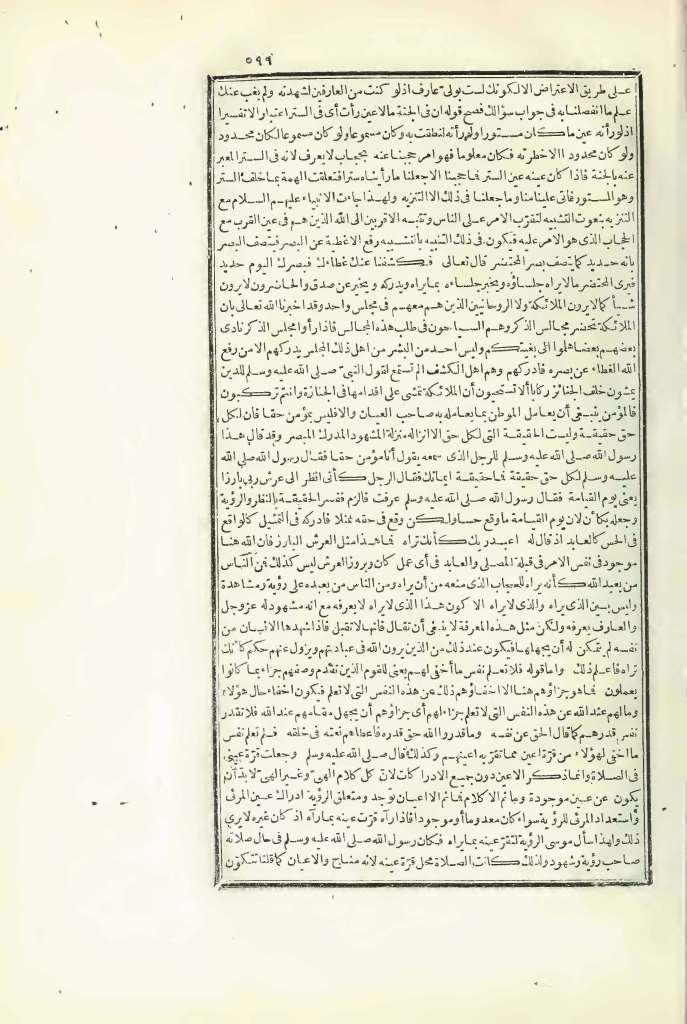 ٥٩٩
على طريق الاعتراض الا لكونك لست بولى عارف اذ لو كنت من العارفين لشهدته ولم يغب عنك
علم ما انفصلنا به فى جواب سؤالك فصح قوله ان فى الجنة مالا عين رأت أى فى الستر اعتبارا لا تفسيرا
اذ لو رأته عين ما كان مستورا ولو رأته لنطقت به وكان مسموعا ولو كان مسموعا لكان محدود
ولو كان محدود الاخطرته فكان معلوما فهو امر حجبنا عنه بحجاب لا يعرف لانه فى الستر المعبر
عنه بالجنة فاذا كان عينه عين الستر فما حجبنا الا جعلنا مارأيناه سترا فتعلقت الهمة بما خلف الستر
وهو المستور فاتى علينا منا وما جعلنا فى ذلك الا التنزيه ولهذا جاءت الانبياء عليهم السلام مع
التنزيه بنعوت التشبيه لتقرب الامر على الناس وتنبه الاقربين الى الله الذين هم فى عين القرب مع
الحجاب الذى هو الامر عليه فيكون فى ذلك التنبيه بالتشبيه رفع الاغطية عن البصر فيتصف البصر
بانه حديد كما يتصف بصر المحتضر قال تعالى فكشفنا عنك غطاءك فبصرك اليوم حديد
فيرى المحتضر مالا يراه جلساؤه ويخبر جلساءه بما يراه ويدركه ويخبر عن صدق والحاضرون لا يرون
شيأ كما لا يرون الملائكة ولا الروحانيين الذين هم معهم فى مجلس واحد وقد اخبرنا الله تعالى بان
الملائكة تحضر مجالس الذكر وهم السياحون فى طلب هذه المجالس فاذا رأوا مجلس الذكر نادى
بعضهم بعضا هلموا الى بغيتكم وليس احد من البشر من اهل ذلك المجلس يدركهم الا من رفع
الله الغطاء عن بصره فادركهم وهم اهل الكشف الم تستمع لقول النبى صلى الله عليه وسلم للذين
يمشون خلف الجنائز ركابا ألا تستحيون أن الملائكة تمشى على اقدامها فى الجنازة وانتم تركبون
فالمؤمن ينبغى أن يعامل الموطن بما يعامله به صاحب العيان والا فليس بمؤمن حقا فان لكل
حق حقيقة وليست الحقيقة التى لكل حق الا انزاله منزلة المشهود المدرك المبصر وقد قال هذا
رسول الله صلى الله عليه وسلم للرجل الذى سمعه يقول أنا مؤمن حقا فقال رسول الله صلى الله
عليه وسلم لكل حق حقيقة فما حقيقة ايمانك فقال الرجل كأنى انظر الى عرش ربى بارزا
يعنى يوم القيامة فقال رسول الله صلى الله عليه وسلم عرفت فالزم ففسر الحقيقة بالنظر والرؤية
وجعله بكأن لان يوم القيامة ما وقع حسا ولكن وقع فى حقه ممثلا فادركه فى التمثيل كالواقع
فى الحس كالعابد اذ قال له اعبد ربك كأنك تراه فما هذا مثل العرش البارز فان الله هنا
موجود فى نفس الامر فى قبلة المصلى والعابد فى أى عمل كان وبروز العرش ليس كذلك فمن الناس
من يعبد الله كأنه يراه للحجاب الذى منعه من أن يراه ومن الناس من يعبده على رؤية ومشاهدة
وليس بين الذى يراه والذى لا يراه الا كون هذا الذى لا يراه لا يعرفه مع انه مشهود له عز وجل
والعارف يعرفه ولكن مثل هذه المعرفة لا ينبغى أن تقال فانها لا تقبل فاذا شهدها الانسان من
نفسه لم يتمكن له أن يجهلها فيكون عند ذلك من الذين يرون الله فى عبادتهم ويزول عنهم حكم كانك
تراه فاعلم ذلك واما قوله فلا تعلم نفس ما أخفى لهم يعنى للقوم الذين تقدم وصفهم جزاء بما كانوا
يعملون فما هو جزاؤهم هنا الا اخفاؤهم ذلك عن هذه النفس التى لا تعلم فيكون اخفاء حال هؤلاء
وما لهم عند الله عن هذه النفس التى لا تعلم جزاء لهم أى جزاؤهم أن يجهل مقامهم عند الله فلا تقدر
نفس قدرهم كما قال الحق عن نفسه وما قدروا الله حق قدره فاعطاهم نعته فى خلقه فلم تعلم نفس
ما اخفى لهؤلاء من قرة اعين مما تقر به اعينهم وكذلك قال صلى الله عليه وسلم وجعلت قرة عينى
فى الصلاة وانما ذكر الاعين دون جميع الادراكات لان كل كلام الهى وغير الهى لابد أن
يكون عن عين موجودة وما ثم الا كلام فما ثم الا اعيان توجد ومتعلق الرؤية ادراك عين المرئى
واستعداد المرئى للرؤية سواء كان معدوما أو موجودا فاذا رآه قرت عينه بما رآه اذ كان غيره لا يرى
ذلك ولهذا سأل موسى الرؤية لتقر عينه بما يراه فكان رسول الله صلى الله عليه وسلم فى حال صلاته
صاحب رؤية وشهود ولذلك كانت الصلاة محل قرة عينه لانه مناج والاعيان كما قلنا تتكون